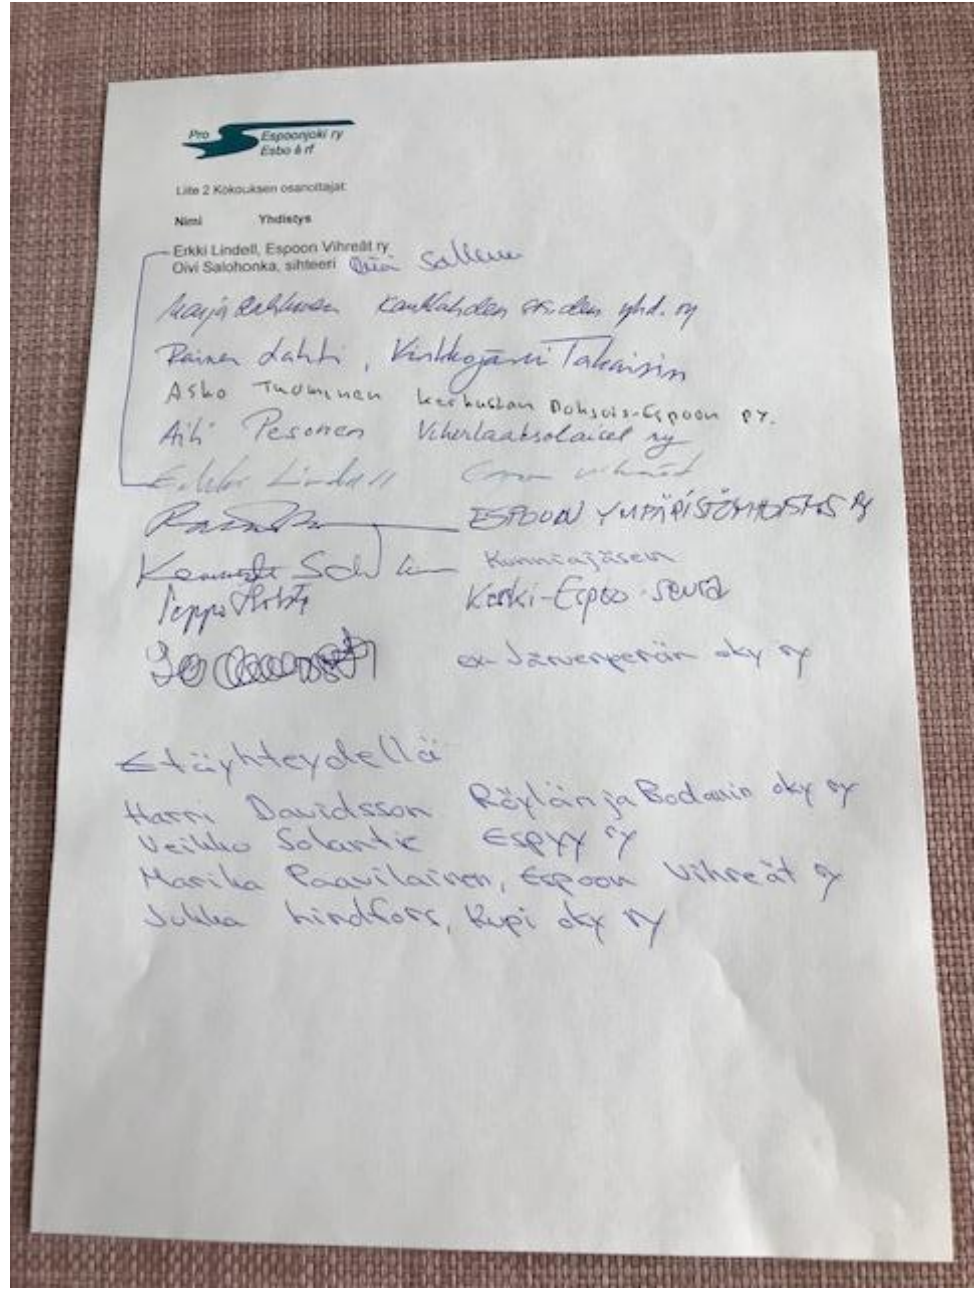 Pro Espoonjoki ry
Esbo å rf
Liite 2 Kokouksen osanottajat:
Nimi Yhdistys
Erkki Lindell, Espoon Vihreät ry
Oivi Salohonka, sihteeri
Marja yhd. ry
Rainer Lahti, Takaisin
Asko Tuominen Keskustan Pohjois-Espoon py.
Aili Pesonen Viherlaaksolaiset ry
Erkki Lindell Espoon vihreät
ESPOON YMPÄRISTÖYHDISTYS Ry
Kunniajäsen
Keski-Espoo-seura
ex-Järvenperän oky ry
Etäyhteydellä
Harri Davidsson Röylän ja Bodomin oky ry
Veikko Solantie Espyy ry
Marika Paavilainen, Espoon Vihreät ry
Jukka Lindfors, Kupi oky ry